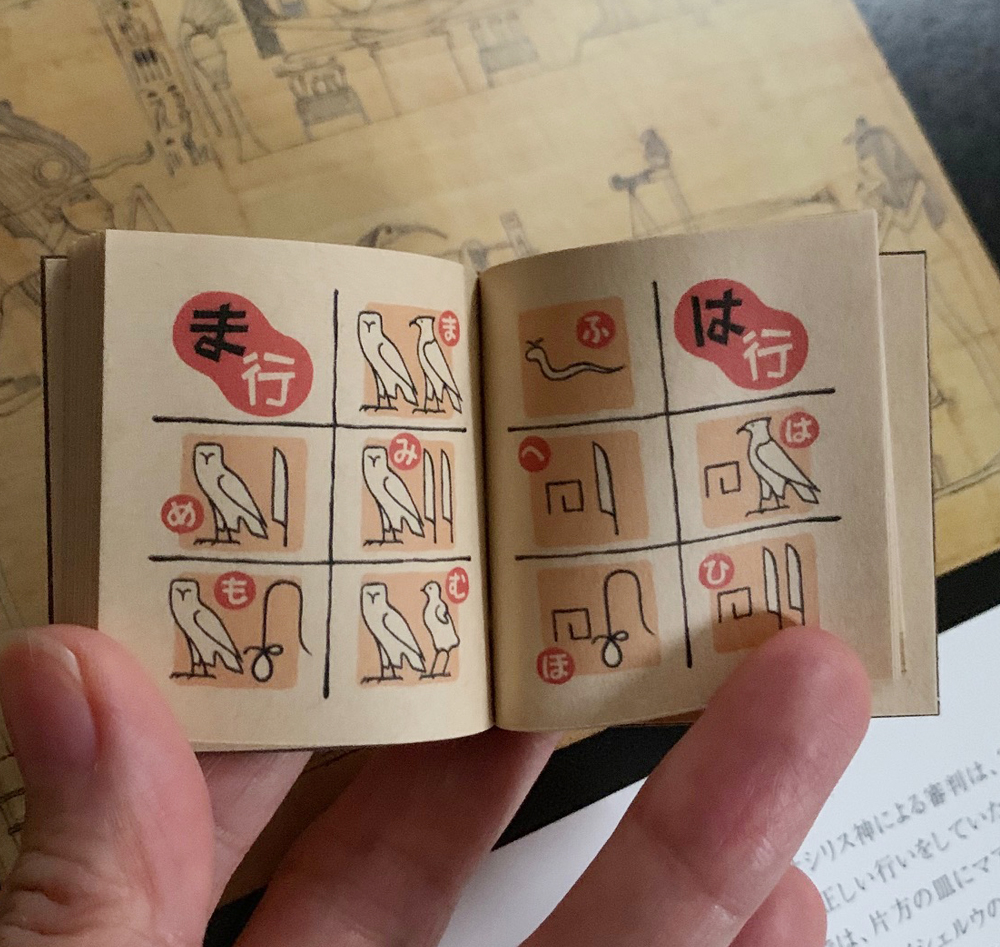 は行
は
ひ
ふ
へ
ほ
ま行
ま
み
む
め
も
シリス神による審判は、
正しい行いをしてい
は、片方の皿にマ
シェルウの